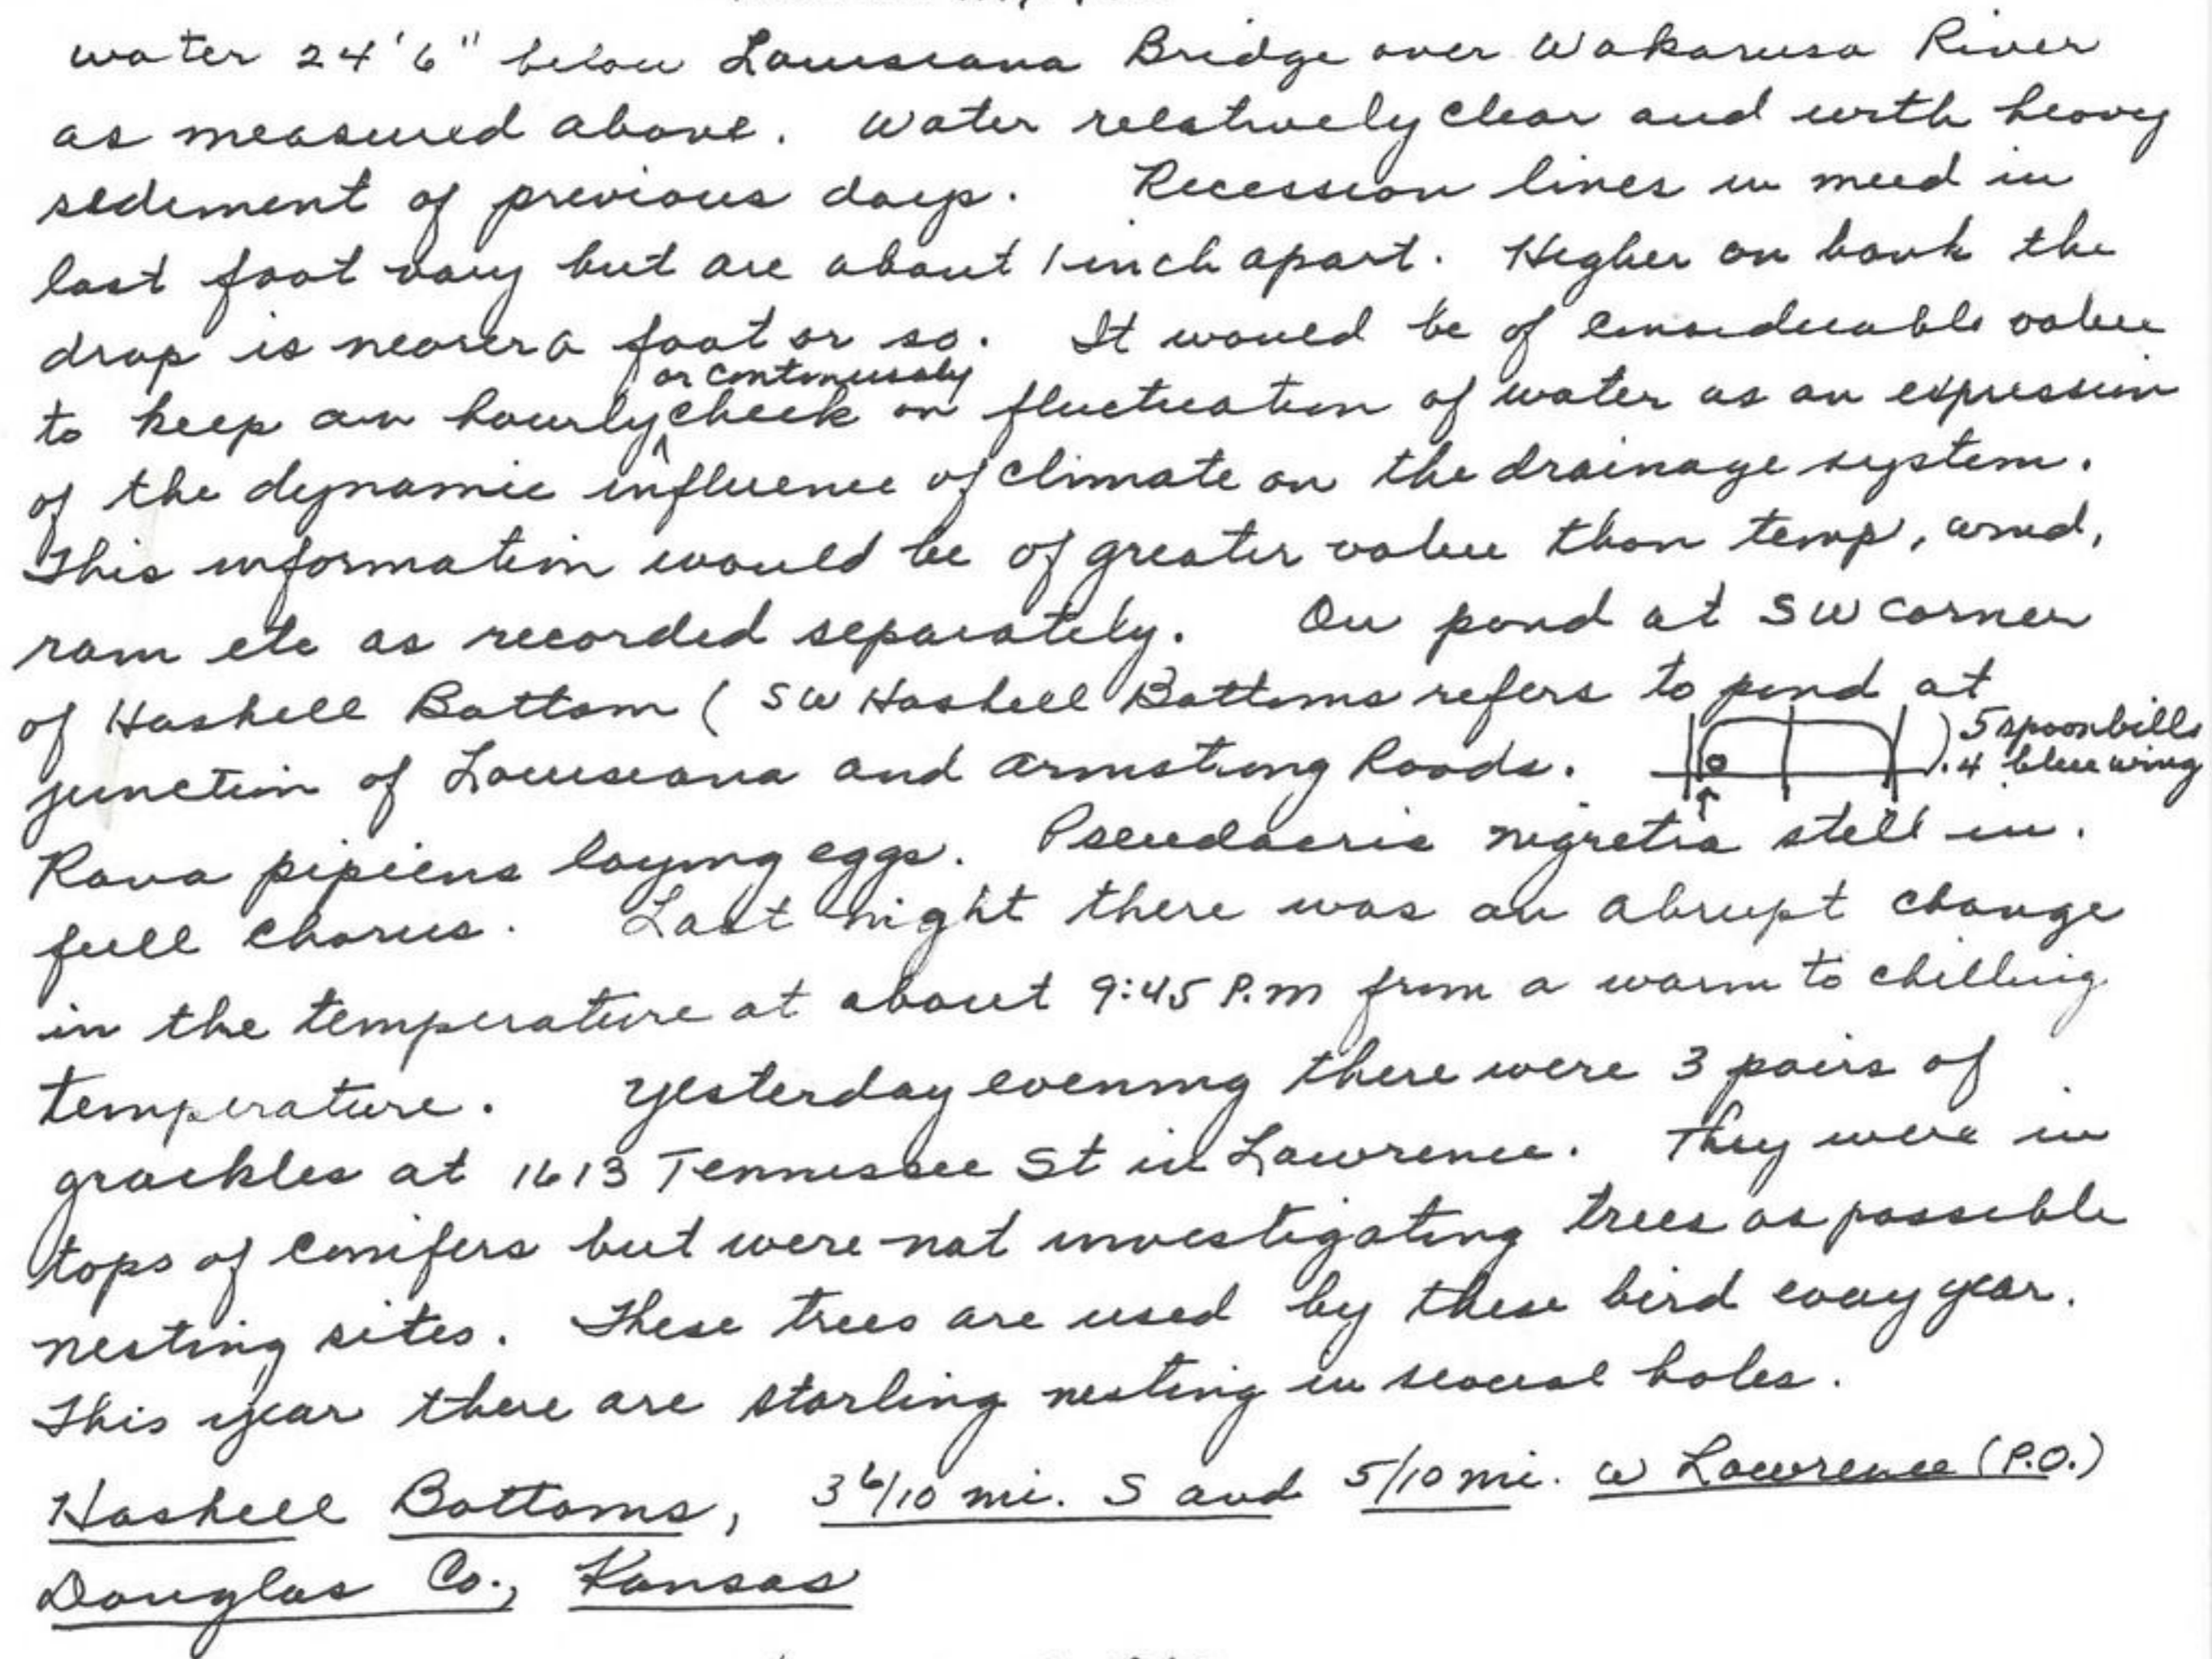 water 24'6" below Louisiana Bridge over Wakarusa River
as measured above. Water relatively clear and with heavy
sediment of previous days. Recession lines in mud in
last foot vary but are about 1 inch apart. Higher on bank the
drop is nearer a foot or so. It would be of considerable value
or continuously
to keep an hourly ^ check on fluctuation of water as an expression
of the dynamic influence of climate on the drainage system.
This information would be of greater value than temp, wind,
rain etc as recorded separately. On pond at SW corner
of Haskell Bottom ( SW Haskell Bottoms refers to pond at
junction of Louisiana and Armstrong Roads. ) 5 spoonbills
4 blue wing
Rana pipiens laying eggs. Pseudacris nigretia still in
full chorus. Last night there was an abrupt change
in the temperature at about 9:45 P.m from a warm to chilling
temperature. Yesterday evening there were 3 pairs of
grackles at 1613 Tennessee St in Lawrence. They were in
tops of conifers but were not investigating trees as possible
nesting sites. These trees are used by these bird every year.
This year there are starling nesting in several holes.
Haskell Bottoms, 3 6/10 mi. S and 5/10 mi. W Lawrence (P.O.)
Douglas Co., Kansas